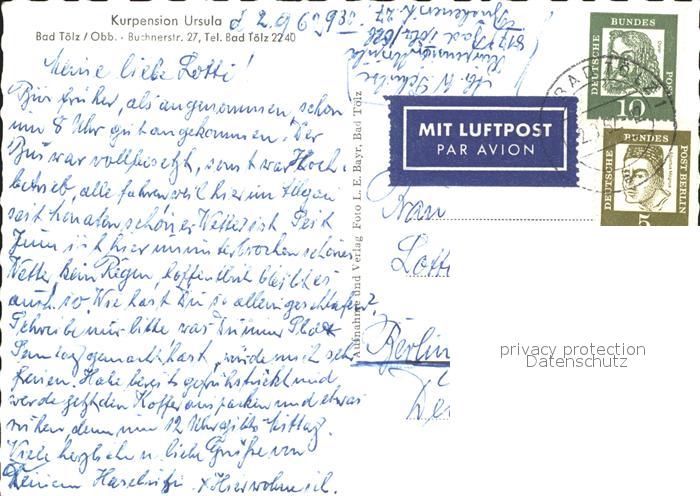 Kurpension Ursula
Bad Tölz / Obb. · Buchnerstr. 27, Tel. Bad Tölz 2240
Meine liebe Lotti!
Bin früher, als angenommen, schon
um 8 Uhr gut angekommen. Der
Bus war voll besetzt, sonst war Hoch-
betrieb, alle fahren weil hier im
seit Monaten schönes Wetter ist. Seit
Juni ist hier ununterbrochen schönes
Wetter, kein Regen, hoffentlich bleibt es
auch so. Wie hast Du so allein geschlafen?
Schreibe mir bitte was Du
gemacht hast, würde mich sehr
freuen. Habe bereits gefrühstückt und
werde jetzt den Koffer auspacken und etwas
ruhen, denn um 12 Uhr gibts Mittag.
Viele herzliche u. liebe Grüße von
Deinem
x Hier wohne ich.
Aufnahme und Verlag Foto L. E. Bayr, Bad Tölz
MIT LUFTPOST
PAR AVION
DEUTSCHE BUNDESPOST
10
DEUTSCHE BUNDESPOST BERLIN
5
BAD TÖLZ 1
Frau
Lott
Berlin
privacy protection
Datenschutz